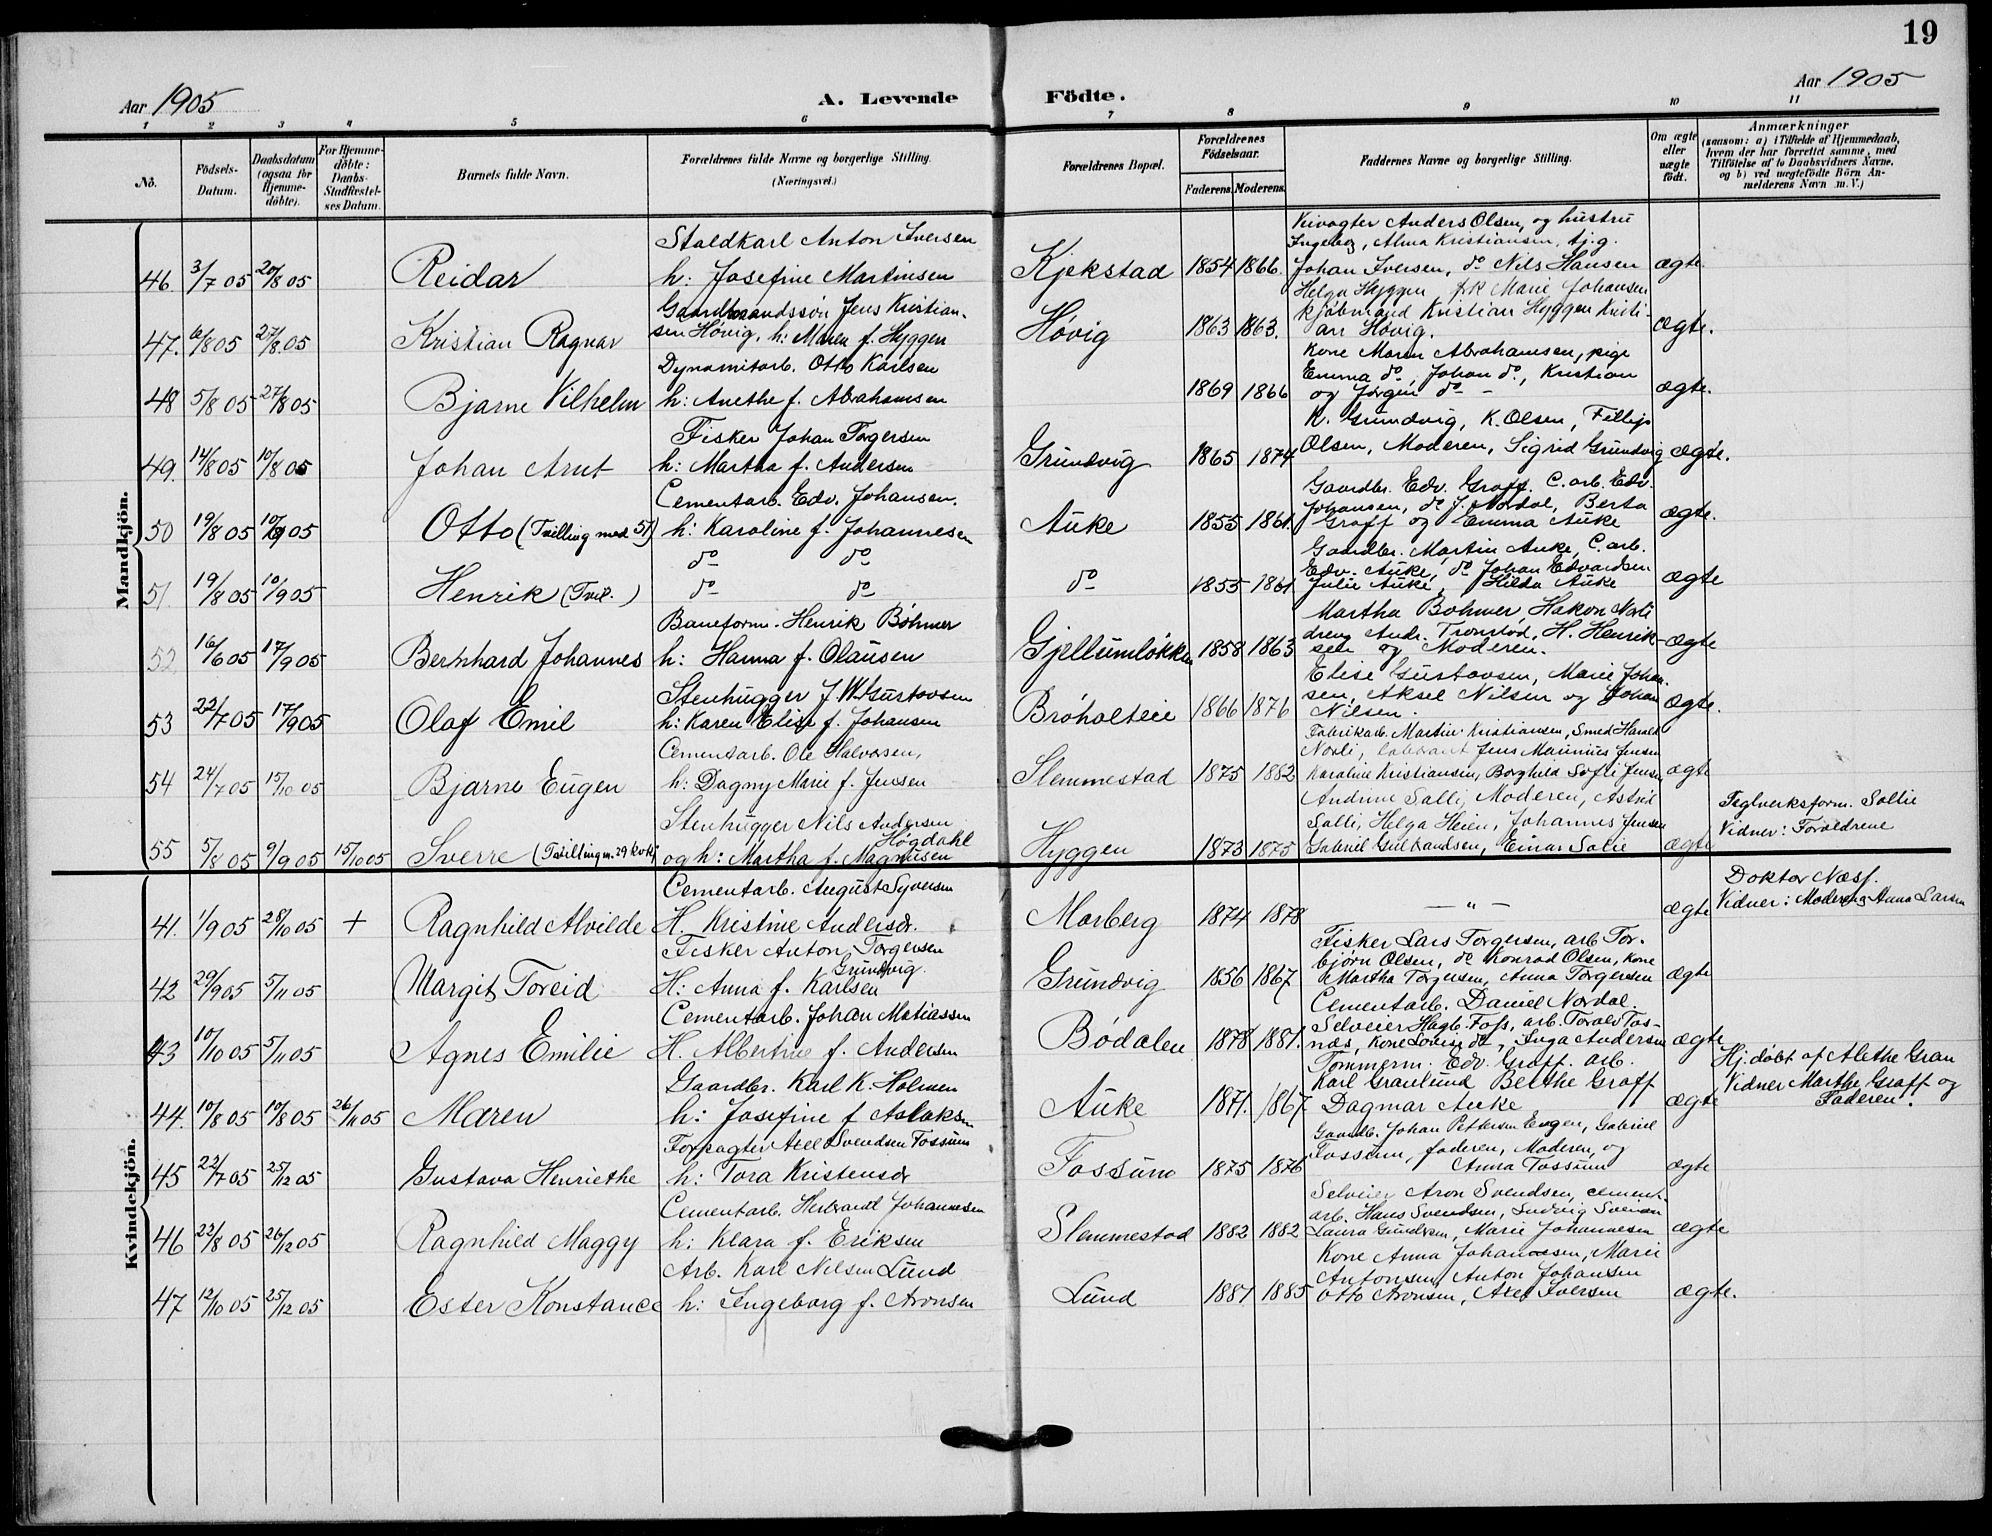 19
Aar 1905
A. Levende
Födte.
Aar 1905
1 2 3 4 5 6 7 8 9 10 11
No.
Födsels-Datum.
Daabsdatum (ogsaa for Hjemme-döbte).
For Hjemme-döbte: Daabs-Stadfestel-ses Datum.
Barnets fulde Navn.
Forældrenes fulde Navne og borgerlige Stilling.
(Næringsvei.)
Forældrenes Bopæl.
Forældrenes Födselsaar.
Faderens. Moderens.
Faddernes Navne og borgerlige Stilling.
Om ægte eller uægte födt.
Anmærkninger
(saasom: a) i Tilfælde af Hjemmedaab, hvem der har forrettet samme, med Tilföielse af to Daabsvidners Navne, og b) ved uægtefödte Börn An-melderens Navn m. V.)
Mandkjön.
46. 3/7 05 20/8 05 Reidar
Staldkarl Anton Iversen
h: Josefine Martinsen
Kjekstad 1854 1866.
Anders Olsen, og hustru
Ingeborg, Alma Kristiansen, tj.g.
Johan Iversen, do Nils Hansen
ægte
47. 6/8 05 27/8 05 Kristian Ragnar
Gaardmandssön Jens Kristian-
sen Høvig, h: Maren f. Hyggen
Høvig 1863 1863.
Helga Hyggen frk Marie Johansen
kjøbmand Kristian Hyggen Kristi-
an Høvig.
ægte.
48 5/8 05 27/8 05 Bjarne Vilhelm
Dynamitarb. Otto Karlsen
h: Anethe f. Abrahamsen
1869 1866
Kone Maren Abrahamsen, pige
Emma do, Johan do, Kristian
og Jörgen do -
ægte.
49. 14/8 05 10/8 05 Johan Arnt
Fisker Johan Torgersen
h: Martha f. Andersen
Grundvig 1865 1874
K. Grundvig, K. Olsen, Fillip
Olsen, Moderen, Sigrid Grundvig
ægte.
50 19/8 05 10/9 05 Otto (Tvilling med 51)
Cementarb. Edv. Johansen.
h: Karoline f. Johannesen
Auke 1855 1861.
Gaardbr. Edv. Graff. C. arb. Edv.
Johansen, do J. Nordal, Berta
Graff og Emma Auke
ægte.
51. 19/8 05 10/9 05 Henrik (Tvil.)
do do
do do
do 1855 1861
Gaardbr. Martin Auke, C. arb.
Edv. Auke, do Johan Edvardsen
Julie Auke, Hilda Auke
ægte
52. 16/6 05 17/9 05 Bernhard Johannes
Baneform. Henrik Böhmer
h: Hanna f. Olausen
Gjellumløkken 1858 1863
Martha Bohmer, Hakon Norli
Andr. Tronstød, H. Henrik-
sen og Moderen.
ægte
53 22/7 05 17/9 05 Olaf Emil
Stenhugger J. W. Gustavsen
h: Karen Elise f. Johansen
Brøholteie 1866 1876
Elise Gustavsen, Marie Johan-
sen, Aksel Nilsen og Johan
Nilsen.
ægte.
54 24/7 05 15/10 05 Bjarne Eugen
Cementarb. Ole Halvorsen,
h: Dagny Marie f. Jensen
Slemmestad 1875 1882
Fabrikarb. Martin Kristiansen, Smed Harald
Norli, Jens Maurinus Jensen
Karoline Kristiansen, Borghild Sofie Jensen
ægte
55 5/8 05 9/9 05 15/10 05 Sverre (Tvilling m. 29 kvk)
Stenhugger Nils Andersen
Høgdahl
og h: Martha f. Magnusen
Hyggen 1873 1875
Andrine Solli, Moderen, Astrid
Solli, Helga Heien, Johannes Jensen
Gabriel Gulbrandsen, Einar Solie
ægte
Teglverksform. Sollie
Vidner: Forældrene
Kvindekjön.
41. 1/9 05 28/10 05 + Ragnhild Alvilde
Cementarb. August Syversen
H. Kristine Andersdr.
Morberg 1874 1878
— " —
ægte
Doktor Næss.
Vidner: Moderen & Anna Larsen
42 29/9 05 5/11 05 Margit Toreid
Fisker Anton Torgersen
Grundvig.
H: Anna f. Karlsen
Grundvig 1856 1867
Fisker Lars Torgersen, arb Tor-
björn Olsen, do Konrad Olsen, Kone
Martha Torgersen, Anna Torgersen
ægte
43 10/10 05 5/11 05 Agnes Emilie
Cementarb. Johan Matiassen
H. Albertine f. Andersen
Bödalen 1878 1881.
Cementarb. Daniel Nordal.
Selveier Hagb. Foss, arb. Torolv Tos-
næs, Kone Lovise do, Inga Andersen
ægte
44. 10/8 05 10/8 05 26/11 05 Maren
Gaardbr. Karl K. Holmen
h: Josefine f Aslaksen
Auke 1871. 1867
Tömmerm. Edv. Graff. arb.
Karl Granlund Berthe Graff
Dagmar Auke
ægte
Hj. döbt af Alethe Gran
Vidner Marthe Graff og
Faderen.
45 22/7 05 25/12 05 Gustava Henriethe
Forpagter Axel Svendsen Fossum
h: Tora Kristensdr
Fossum 1875 1876
Gaardb. Johan Pettersen Engen, Gabriel
Fossum, faderen, Moderen og
Anna Fossum
ægte
46 22/8 05 26/12 05 Ragnhild Maggy
Cementarb. Herbrandt Johannesen
h: Klara f. Eriksen
Slemmestad 1882 1882
Selveier Aron Svendsen, cement-
arb. Hans Svendsen, Ludvig Svendsen
Laura Gundersen, Marie Johannesen
ægte
47 12/10 05 25/12 05 Ester Konstance
Arb. Karl Nilsen Lund
h: Ingeborg f. Aronsen
Lund 1881 1885
Kone Anna Johannesen, Marie
Antonsen, Anton Johansen
Otto Aronsen, Axel Iversen
ægte.